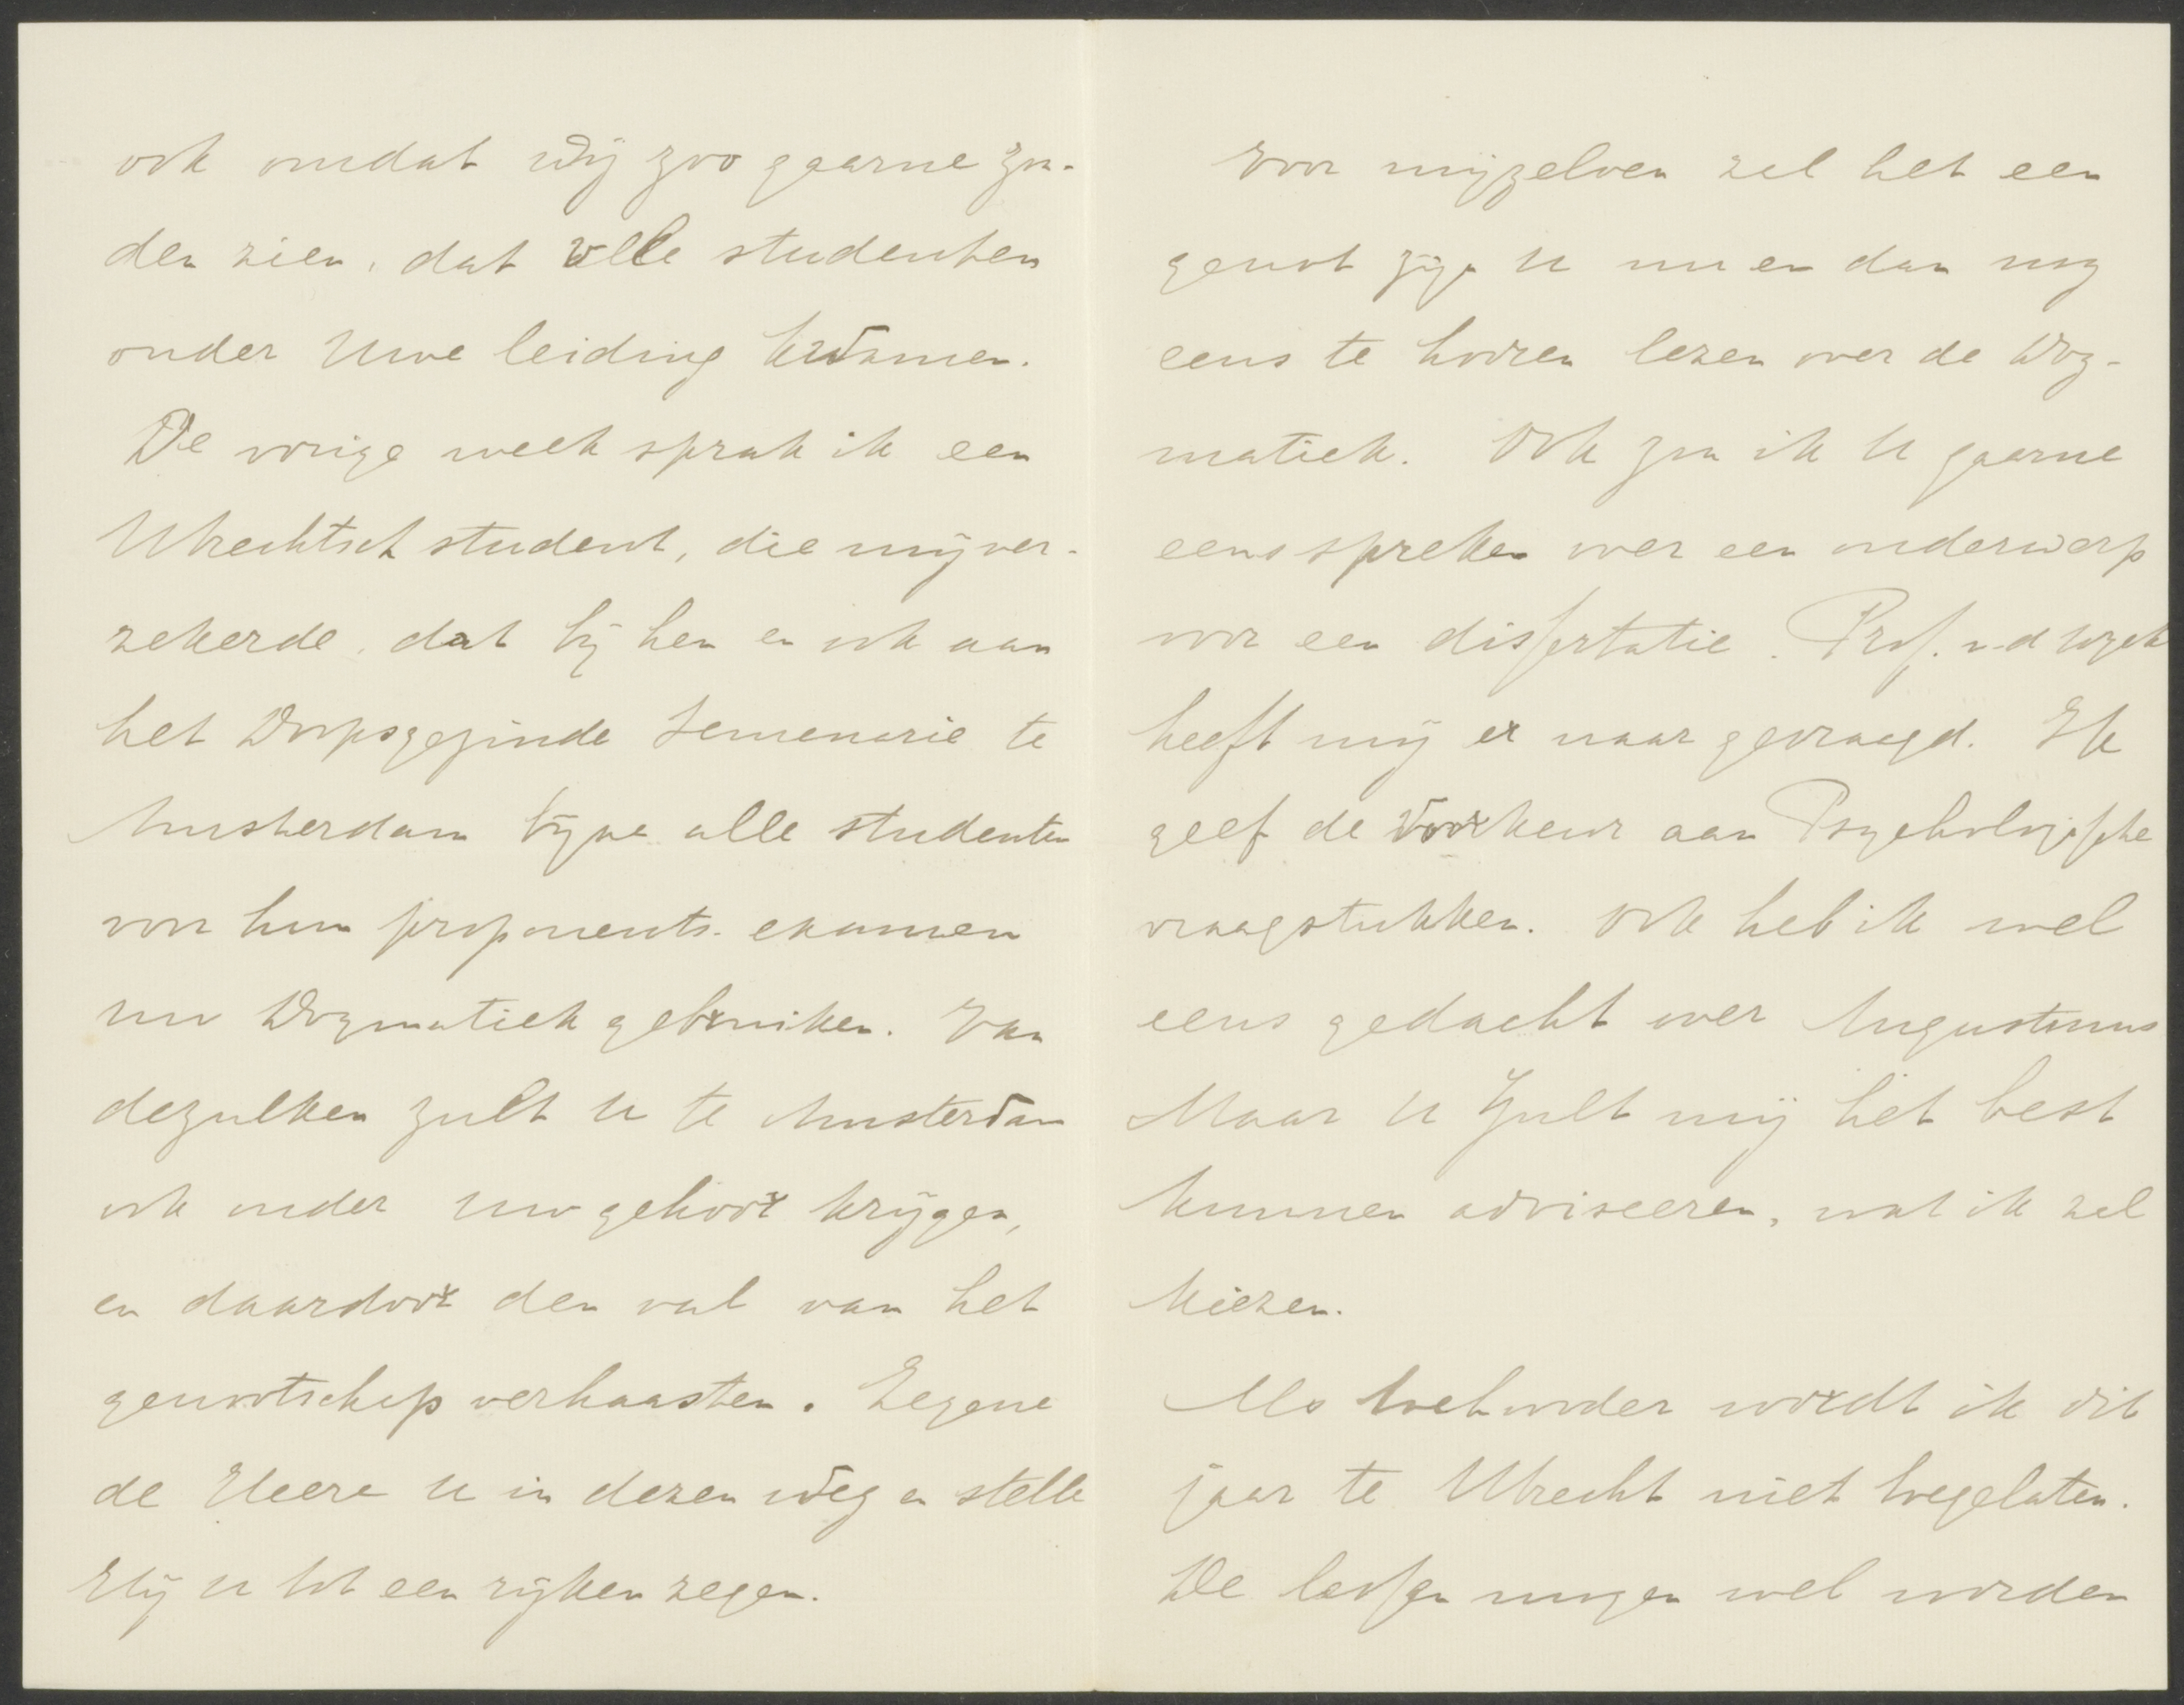 ook omdat wij zoo gaarne zou-
den zien, dat alle studenten
onder Uwe leiding kwamen.
De vorige week sprak ik een
Utrechtsch student, die mij ver-
zekerde, dat bij hen en ook aan
het Doopsgezinde Semenarie te
Amsterdam bijna alle studenten
voor hun proponents-examen
uw Dogmatiek gebruiken. Van
dezulken zult U te Amsterdam
ook onder uw gehoor krijgen,
en daardoor den val van het
genootschap verhaasten. Zegene
de Heere U in dezen weg en stelle
Hij U tot een rijken zegen.
Voor mijzelven zal het een
genot zijn U nu en dan nog
eens te hooren lezen over de Dog-
matiek. Ook zou ik U gaarne
eens spreken over een onderwerp
voor een dissertatie. Prof. v.d Wyck
heeft mij er naar gevraagd. Ik
geef de voorkeur aan Psychologische
vraagstukken. Ook heb ik wel
eens gedacht over Augustinus
Maar U zult mij het best
kunnen adviseeren, wat ik zal
kiezen.
Als toehoorder wordt ik dit
jaar te Utrecht niet toegelaten.
De lessen mogen wel worden